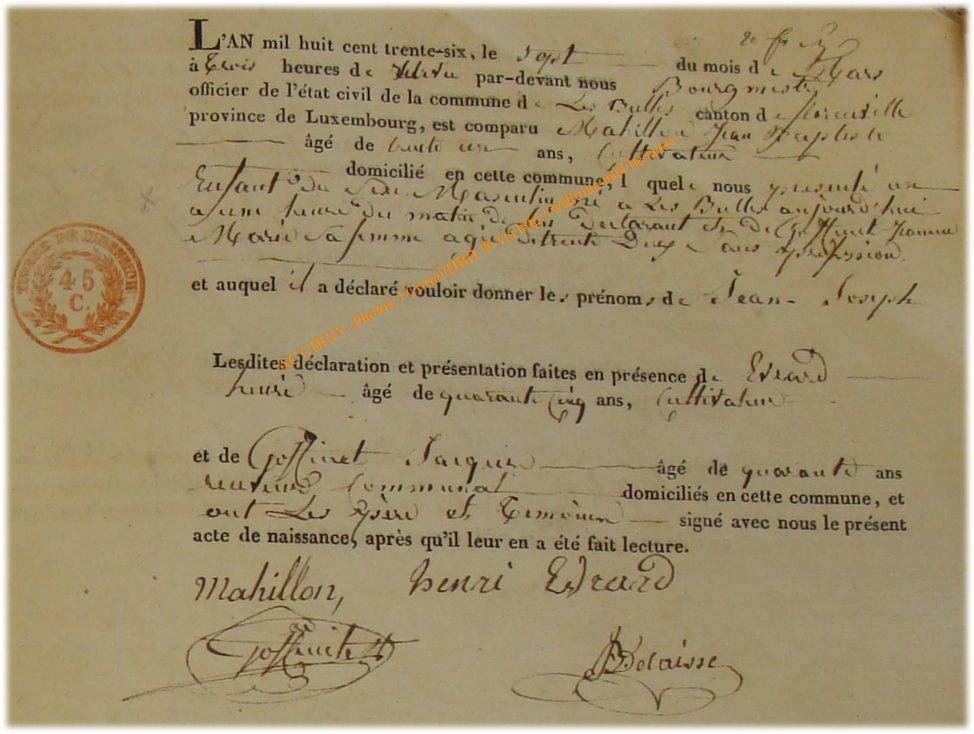 L'AN mil huit cent trente-six, le Sept du mois de Mars
à trois heures de relevé par-devant nous Bourgmestre
officier de l'état civil de la commune de Les Bulles canton de florenville
province de Luxembourg, est comparu Mahillon Jean Baptiste
âgé de trente un ans, Cultivateur
domicilié en cette commune, lequel nous presenté un
Enfant du Sexe Masculin né a Les Bulles aujourd'hui
a une heure du matin de lui declarant et de Goffinet Jeanne
Marie Sa femme agée de trente Deux ans Sans profession.
et auquel il a déclaré vouloir donner les prénoms de Jean-Joseph
Lesdites déclaration et présentation faites en présence de Evrard
henri âgé de quarante Cinq ans, Cultivateur
et de Goffinet Jacques âgé de quarante ans
receveur Communal domiciliés en cette commune, et
ont Les père et Temoins signé avec nous le présent
acte de naissance, après qu'il leur en a été fait lecture.
Mahillon, henri Evrard
Goffinet Delaisse
45
C.